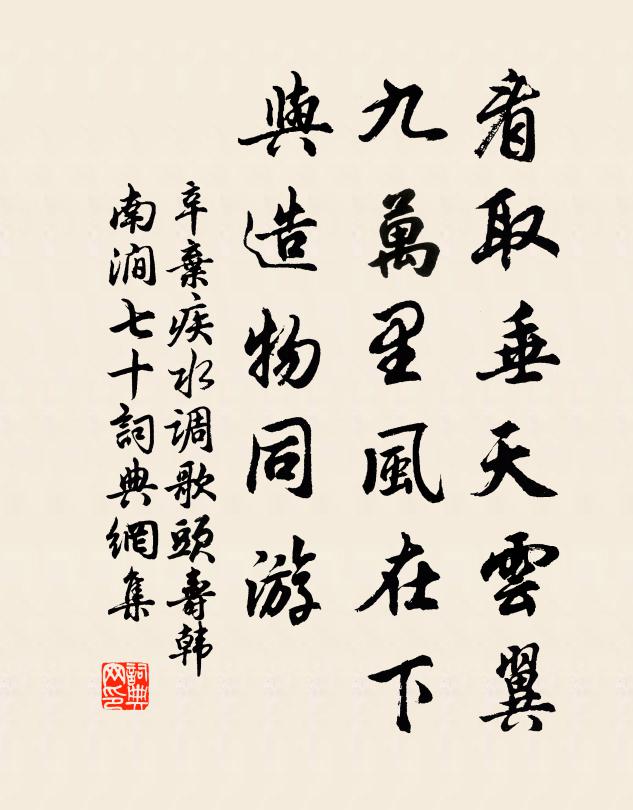 看取垂天雲翼
九萬里風在下
與造物同游
辛棄疾水调歌頭壽韩
南澗七十詞典網集
詞典网印